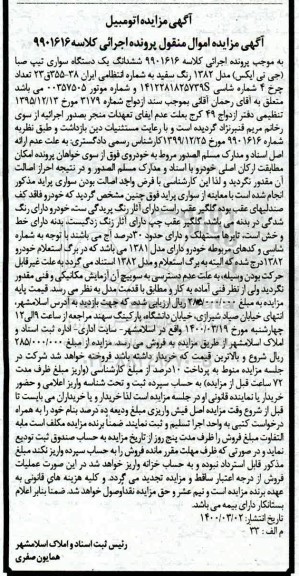 آگهی مزایده اتومبیل
آگهی مزایده اموال منقول پرونده اجرائی کلاسه ۹۹۰۱۶۱۶
به موجب پرونده اجرائی کلاسه ۹۹۰۱۶۱۶ ششدانگ یک دستگاه سواری تیپ صبا
(جی تی ایکس) مدل ۱۳۸۲ رنگ سفید به شماره انتظامی ایران ۳۸-۳۵۵ق۲۳ تعداد
چرخ ۴ شماره شاسی S۱۴۱۲۲۸۱۸۲۵۷۳۹ و شماره موتور ۰۰۳۵۷۵۰۵ می باشد
متعلق به آقای رحمان آقائی بموجب سند ازدواج شماره ۳۱۷۹ مورخ ۱۳۹۵/۱۲/۱۲
تنظیمی دفتر ازدواج ۴۹ کرج بعلت عدم ایفای تعهدات منجر بصدور اجرائیه از سوی
خانم مریم قنبرنژاد گردیده است و با رعایت مستثنیات دین بازداشت و طبق نظریه
شماره ۹۹۰۱۶۱۶ مورخ ۱۳۹۹/۱۲/۲۵کارشناس رسمی دادگستری: به علت عدم ارائه
اصل اسناد و مدارک مسلم الصدور مربوط به خودروی فوق از سوی خواهان پرونده امکان
مطابقت ارکان اصلی خودرو با اسناد و مدارک مسلم الصدور و در نتیجه احراز اصالت
آن مقدور نگردید و لذا این کارشناسی با فرض واجد اصالت بودن سواری پراید مذکور
انجام شده است با معاینه از سواری پراید فوق چنین مشخص گردید که خودرو فاقد کف
صندلیهای عقب بوده گلگیر عقب راست دارای آثار رنگ پریدگی ست خودرو دارای رنگ
شدگی در بدنه می باشد. گلگیر عقب چپ دارای آثار رنگ زدگیست بدنه دارای خط
و خش است، لاستیکها مستهلک و دارای حدود ۳۰درصد آج می باشند با توجه به شماره
شاسی و کدهای مربوطه خودرو دارای مدل ۱۳۸۱ می باشد که در برگ استعلام خودرو
۱۳۸۲درج شده که البته به برگ استعلام و مدل ۱۳۸۲ استناد می گردد به علت غیر قابل
حرکت بودن وسیله، به علت عدم دسترسی به سوییچ آن آزمایش مکانیکی و فنی مقدور
نگردید ولی از نظر فنی آماده به کار و مطابق با قدمت مدل به نظر می رسد. قیمت پایه
مزایده به مبلغ ریال ارزیابی شده، که جهت بازدید به آدرس اسلامشهر،
انتهای خیابان صیاد شیرازی، خیابان دانشگاه، پارکینگ سهند مراجعه از ساعت ۹الی۱۲
چهارشنبه مورخ ۱۴۰۰/۰۳/۱۹ واقع در اسلامشهر- سایت اداری- اداره ثبت اسناد و
املاک اسلامشهر از طریق مزایده به فروش می رسد. مزایده از مبلغ ۲۸۵/۰۰۰/۰۰۰
ریال شروع و بالاترین قیمت که خریدار داشته باشد فروخته خواهد شد شرکت در
جلسه مزایده منوط به پرداخت ۱۰درصد از مبلغ کارشناسی (واریز مبلغ ظرف مدت
۷۲ ساعت قبل از مزایده) به حساب سپرده ثبت و تحت شناسه واریز اعلامی و حضور
خریدار یا نماینده قانونی او در جلسه مزایده است لذا خریدار و یا خریداران می بایست تا
قبل از شروع وقت مزایده اصل فیش واریزی مبلغ ودیعه ده درصد بنام خود را به همراه
درخواست کتبی به واحد اجرا تسلیم و ثبت نمایند، ضمنا برنده مزایده مکلف است مابه
التفاوت مبلغ فروش را ظرف مدت پنج روز از تاریخ مزایده به حساب صندوق ثبت تودیع
نماید و در صورتی که ظرف مهلت مقرر مانده فروش را به حساب سپرده واریز نکند مبلغ
مذکور قابل استرداد نبوده و به حساب خزانه واریز خواهد شد در این صورت عملیات
فروش از درجه اعتبار ساقط و مزایده تجدید می گردد. و کلیه هزینه های قانونی به
عهده برنده مزایده است و نیم عشر و حق مزایده نقداً وصول خواهد شد. ضمنا بنابر اعلام
بستانکار دارای بیمه می باشد.
تاریخ انتشار: ۱۴۰۰/۰۳/۰۲
م الف : ۳۳
رئیس ثبت اسناد و املاک اسلامشهر
همایون صفری